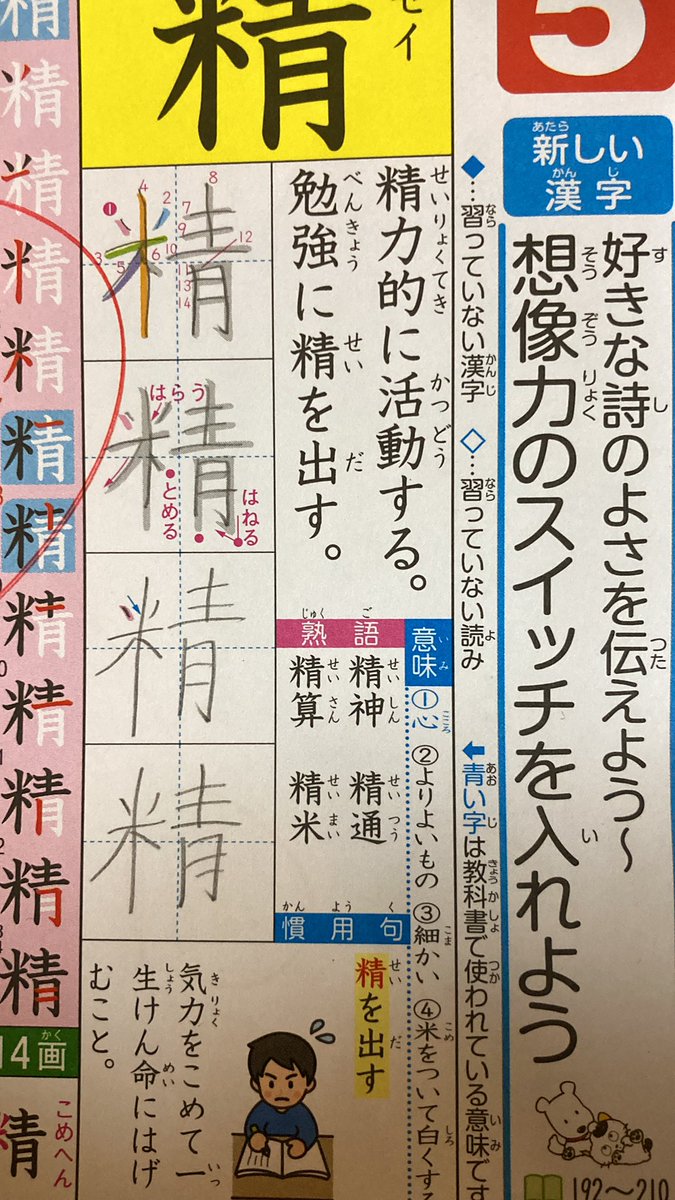 5
新しい漢字
好きな詩のよさを伝えよう〜
想像力のスイッチを入れよう
192〜210
◆…習っていない漢字 ◇…習っていない読み ⬅青い字は教科書で使われている意味です
セイ
精
精力的に活動する。
勉強に精を出す。
意味 ①心 ②よりよいもの ③細かい ④米をついて白くする
熟語
精神 精通
精算 精米
慣用句
精を出す
気力をこめて一
生けん命にはげ
むこと。
精
1 2 3 4 5 6 7 8 9 10 11 12 13 14
精
はらう
とめる
はねる
精
精
精
精
精
精
精
精
精
精
精
精
精
精
14画
精
こめへん